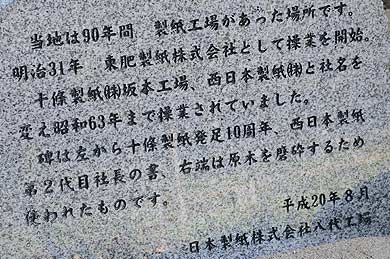 当地は90年間　製紙工場があった場所です。
明治31年　東肥製紙株式会社として操業を開始。
十條製紙㈱坂本工場、西日本製紙㈱と社名を
変え昭和63年まで操業されていました。
碑は左から十條製紙発足10周年、西日本製紙
第２代目社長の書、右端は原木を磨砕するため
使われたものです。
平成20年８月
日本製紙株式会社八代工場